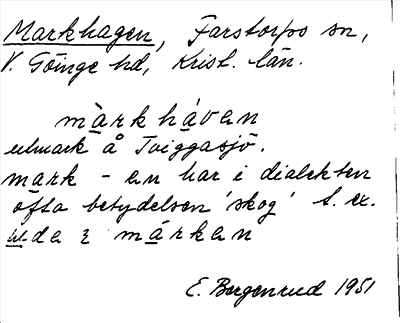 Markhagen, Farstorps sn,
V. Göinge hd, Krist. län.
màrkháven
utmark å Tviggasjö.
mark - en har i dialekten
ofta betydelsen 'skog' t. ex.
i márkan
E. Bergenrud 1951